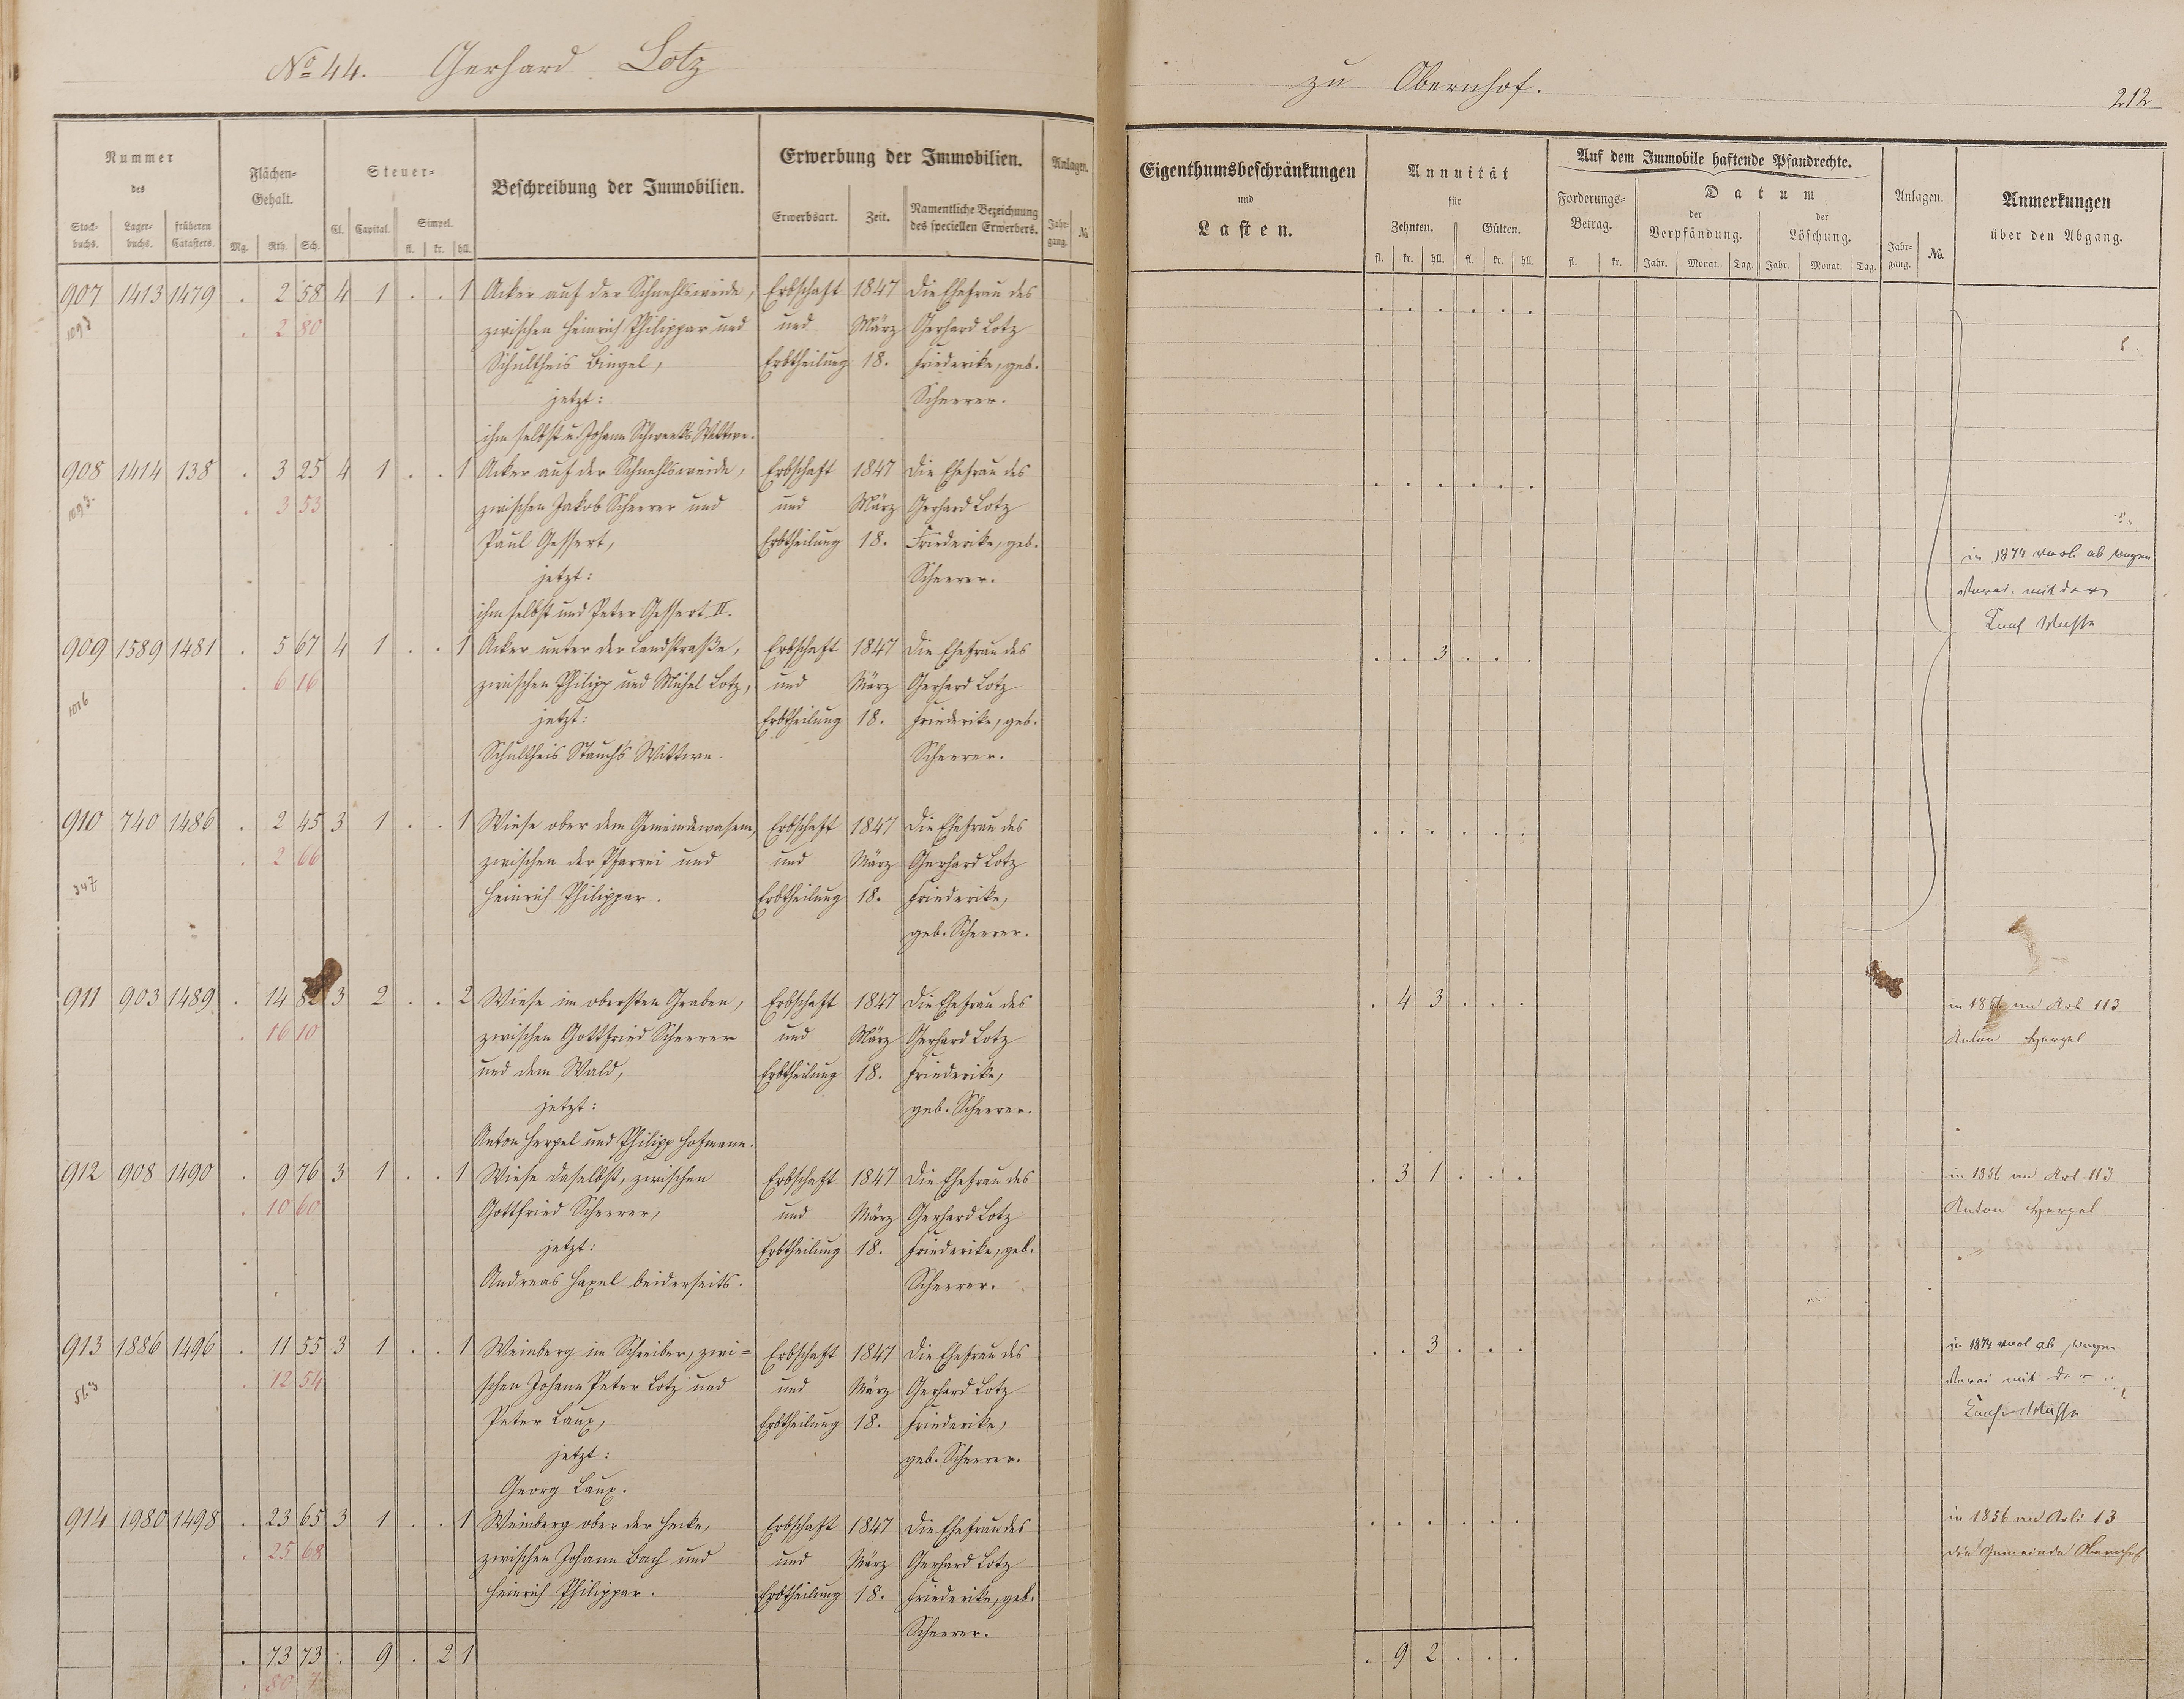 No 44. Gerhard Lotz
zu Obernhof.
212
Nummer des
Stock-buchs. Lager-buchs. früheren Catasters.
Flächen-Gehalt.
Mg. Rth. Sch.
Steuer-
Cl. Capital. Simpel.
fl. kr. hll.
Beschreibung der Immobilien.
Erwerbung der Immobilien.
Erwerbsart. Zeit. Namentliche Bezeichnung des speciellen Erwerbers.
Anlagen.
Jahr-gang. No
Eigenthumsbeschränkungen
und
Lasten.
Annuität
für
Zehnten. Gülten.
fl. kr. hll. fl. kr. hll.
Auf dem Immobile haftende Pfandrechte.
Forderungs-Betrag.
fl. kr.
Datum
der Verpfändung. der Löschung.
Jahr. Monat. Tag. Jahr. Monat. Tag.
Anlagen.
Jahr-gang. No.
Anmerkungen
über den Abgang.
907 1413 1479 . 2 58 4 1 . . 1 Acker auf der Schnehlsweide, Erbschaft 1847 die Ehefrau des
. 2 80 zwischen Heinrich Philippar und und März Gerhard Lotz
Schultheis Bingel, Erbtheilung 18. Friederike, geb.
jetzt: Scheerer.
ihm selbst u. Johann Wittwe.
908 1414 138 . 3 25 4 1 . . 1 Acker auf der Schnehlsweide, Erbschaft 1847 die Ehefrau des
. 3 53 zwischen Jakob Scheerer und und März Gerhard Lotz
Paul Gessert, Erbtheilung 18. Friederike, geb.
jetzt: Scheerer.
ihm selbst und Peter Gessert II.
in 1874 ab wegen
mit der
909 1589 1481 . 5 67 4 1 . . 1 Acker unter der Landstraße, Erbschaft 1847 die Ehefrau des . . 3 . . .
. 6 16 zwischen Philipp und Michel Lotz, und März Gerhard Lotz
1016
jetzt: Erbtheilung 18. Friederike, geb.
Schultheis Stauch's Wittwe. Scheerer.
910 740 1486 . 2 45 3 1 . . 1 Wiese ober dem Gemeindewasem, Erbschaft 1847 die Ehefrau des
. 2 66 zwischen der Pfarrei und und März Gerhard Lotz
347
Heinrich Philippar. Erbtheilung 18. Friederike,
geb. Scheerer.
911 903 1489 . 14 82 3 2 . . 2 Wiese im obersten Graben, Erbschaft 1847 die Ehefrau des . 4 3 . . . in 1856 an Art 113
. 16 10 zwischen Gottfried Scheerer und März Gerhard Lotz Anton Herpel
und dem Wald, Erbtheilung 18. Friederike,
jetzt: geb. Scheerer.
Anton Herpel und Philipp Hofmann.
912 908 1490 . 9 76 3 1 . . 1 Wiese daselbst, zwischen Erbschaft 1847 die Ehefrau des . 3 1 . . . in 1856 an Art 113
. 10 60 Gottfried Scheerer, und März Gerhard Lotz Anton Herpel
jetzt: Erbtheilung 18. Friederike, geb.
Andreas Hapel beiderseits. Scheerer.
913 1886 1496 . 11 55 3 1 . . 1 Weinberg im Schreiber, zwi= Erbschaft 1847 die Ehefrau des . . 3 . . . in 1874 ab wegen
. 12 54 schen Johann Peter Lotz und und März Gerhard Lotz mit der
Peter Laux, Erbtheilung 18. Friederike,
jetzt: geb. Scheerer.
Georg Laux.
914 1980 1498 . 23 65 3 1 . . 1 Weinberg ober der Hecke, Erbschaft 1847 die Ehefrau des in 1856 an Arti 13
. 25 68 zwischen Johann Bach und und März Gerhard Lotz die Gemeinde Obernhof
Heinrich Philippar. Erbtheilung 18. Friederike, geb.
Scheerer.
. 73 73 . 9 . 2 1 . 9 2 . . .
. 80 7